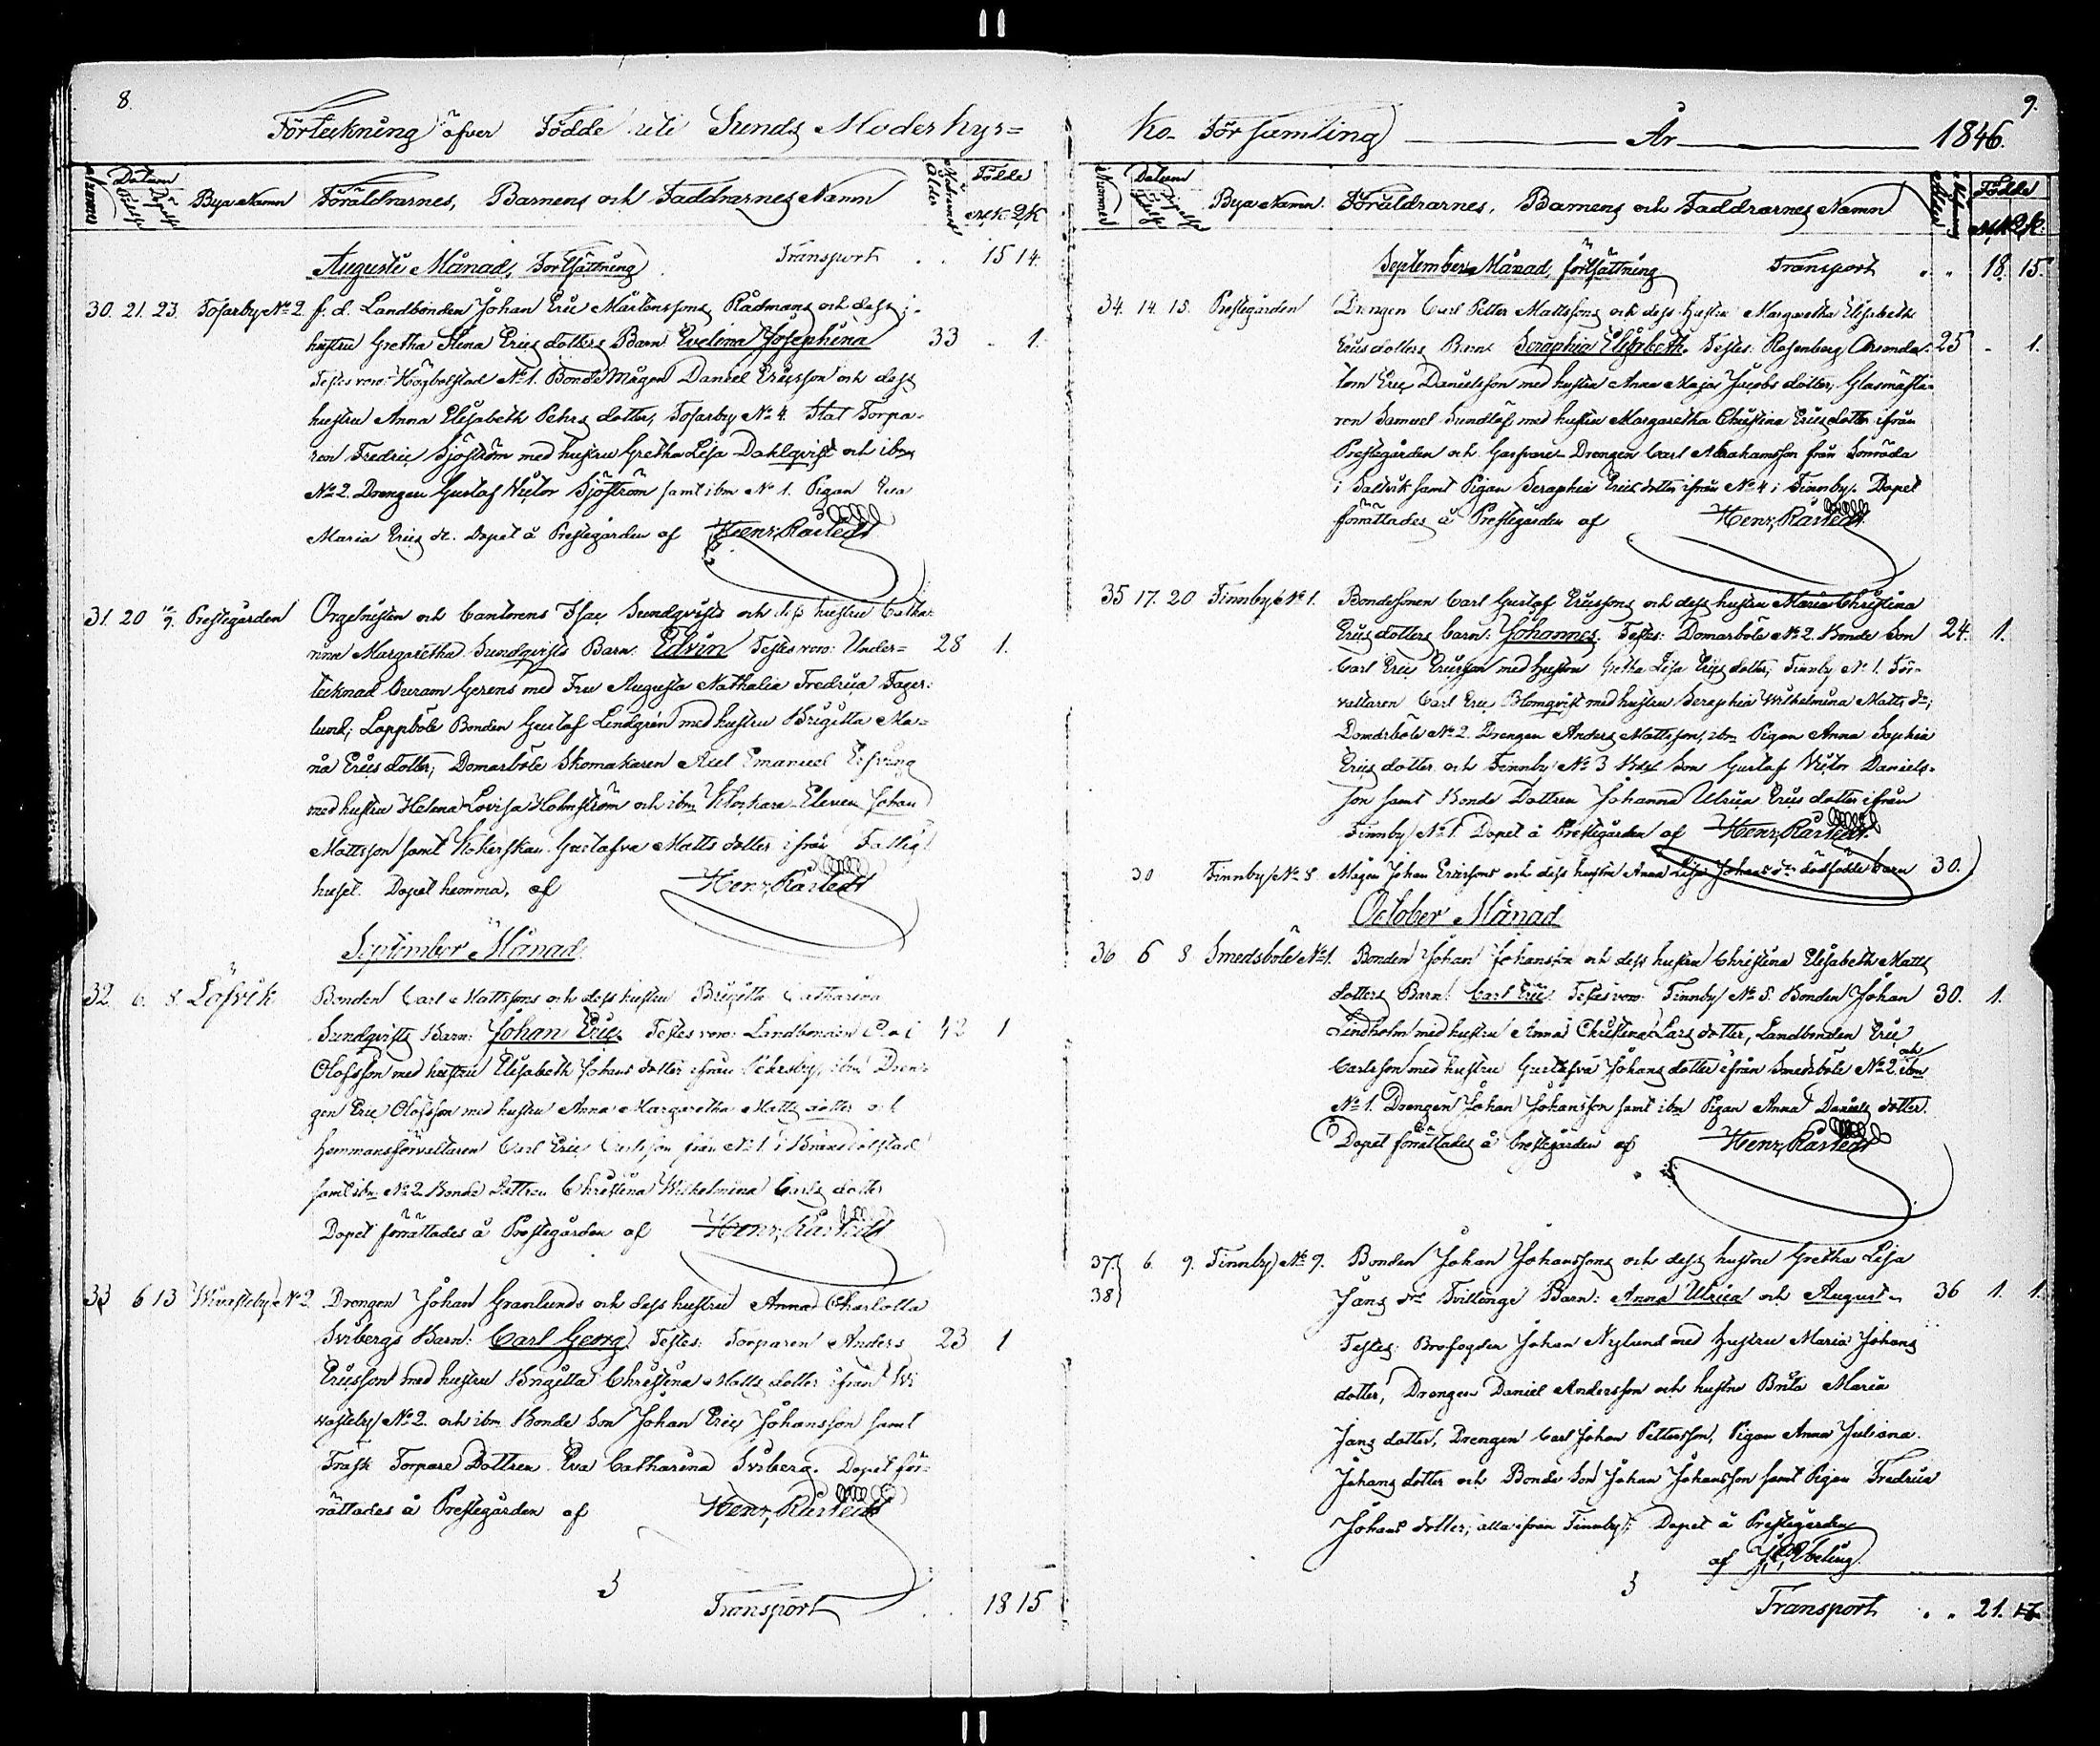 8.
Förteckning öfver Födde uti Sunds Moderkyr=
Nummer Datum Födelse Döpelse Bya Namn Föräldrarnes, Barnens och Faddrarnes Namn Modrarnes Ålder Födde M.K. Q.K.
Augusti Månad, Fortsättning. Transport . . 15 14.
30. 21. 23. Tosarby No 2. f. d. Landbonden Johan Eric Mårtenssons Rådmans och dess
hustru Gretha Stina Ericsdotters Barn Evelina Josephina 33 . 1.
Testes voro: Högbolstad No 1. Bonde Mågen Daniel Ericsson och dess
hustru Anna Elisabeth Pehrs dotter, Tosarby No 4. Stat Torpa-
ren Fredric Sjöström med hustru Gretha Lisa Dahlqvist och ibm
No 2. Drengen Gustaf Victor Sjöström samt ibm No 1. Pigan Eva
Maria Erics dr. Dopet å Prestegården af Henr. Råstedt
31. 20 9. Prestegården Orgelnisten och Cantorens Isac Sundqvists och dess hustru Catha-
rina Margaretha Sundqvists Barn: Edvin Testes voro: Under= 28 1.
tecknad Överam Gerens med Fru Augusta Nathalia Fredrica Fager-
lund; Lappböle Bonden Gustaf Lindgrén med hustru Brigitta Ma-
ria Ericsdotter; Domarböle Skomakaren Axel Emanuel
med hustru Helena Lovisa Holmström och ibm Klockare-Eleven Johan
Mattsson samt Kokerskan Gustafva Mattsdotter ifrån Fattig-
huset. Dopet hemma, af Henr. Råstedt
September Månad
32. 6. 8. Löfvik Bonden Carl Mattssons och dess hustru Brigitta Catharina
Sundqvists Barn: Johan Eric. Testes voro: Landbonden Carl 42 1
Olofsson med hustru Elisabeth Johansdotter ifrån ibm Dren-
gen Eric Olofsson med hustru Anna Margaretha Matts dotter och
Hemmansförvaltaren Carl Eric Carlsson från No 1 i Brändbolstad
samt ibm No 2 Bonde Dottren Christina Wilhelmina Carls dotter
Dopet förrättades å Prestegården af Henr. Råstedt
33 6 13 Wivasteby No 2. Drengen Johan Granlunds och dess hustru Anna Charlotta
Svibergs Barn: Carl Georg. Testes: Torparen Anders 23 1
Ericsson med hustru Brigitta Christina Matts dotter ifrån Wi
vasteby No 2. och ibm Bonde Son Johan Eric Johansson samt
Träsk Torpare Dottren Eva Catharina Sviberg. Dopet för-
rättades å Prestegården af Henr. Råstedt
3
Transport . . 18 15
9.
Ko- Församling År 1846.
Nummer Datum Födelse Döpelse Bya Namn. Föräldrarnes, Barnens och Faddrarnes Namn Ålder Födde M.K. Q.K.
September Månad, fortsättning Transport . . 18. 15.
34. 14. 15. Prestegården Drengen Carl Petter Mattssons och dess Hustru Margaretha Elisabeth
Ericsdotters Barn: Seraphia Elisabeth. Testes: Rosenberg Arrenda- 25 . 1.
torn Eric Danielsson med hustru Anna Maja Jacobs dotter, Glasmästa-
ren Samuel Sundlöf med hustru Margaretha Christina Ericsdotter ifrån
Prestegården och Garfvare-Drengen Carl Abrahamsson från Sonröda
i Saltvik samt Pigan Seraphia Ericsdotter ifrån No 4 i Finnby. Dopet
förrättades å Prestegården af Henr. Råstedt.
35 17. 20 Finnby No 1. Bondesonen Carl Gustaf Ericssons och dess hustru Maria Christina
Ericsdotters barn: Johannes. Testes: Domarböle No 2. Bonde Son 24. 1.
Carl Eric Ericsson med hustru Gretha Lisa Ericsdotter, Finnby No 1. För-
valtaren Carl Eric Blomqvist med hustru Seraphia Wilhelmina Matts dr,
Domarböle No 2. Drengen Anders Mattsson, ibm Pigan Anna Sophia
Ericsdotter och Finnby No 3 Son Gustaf Victor Daniels-
son samt Bonde Dottren Johanna Ulrica Ericsdotter ifrån
Finnby No 1. Dopet å Prestegården af Henr. Råstedt.
30 Finnby No 8. Mågen Johan Ericssons och dess hustru Anna Lisa Johans drs dödfödde barn 30.
October Månad
36 6 8 Smedsböle No 1. Bonden Johan Johansson och dess hustru Christina Elisabeth Matts
dotters Barn: Carl Eric. Testes voro: Finnby No 8. Bonden Johan 30. 1.
Lindholm med hustru Anna Christina Lars dotter, Landbonden Eric
Carlsson med hustru Gustafva Johans dotter ifrån Smedsböle No 2. och ibm
No 1. Drengen Johan Johansson samt ibm Pigan Anna Daniels dotter.
Dopet förrättades å Prestegården af Henr. Råstedt
37. 38 6. 9. Finnby No 9. Bonden Johan Johanssons och dess hustru Gretha Lisa
Jans drs Tvillinge Barn: Anna Ulrica och August. 36 1. 1.
Testes: Brofogden Johan Nylund med hustru Maria Johans
dotter, Drengen Daniel Andersson och hustru Brita Maria
Jans dotter, Drengen Carl Johan Pettersson, Pigan Anna Juliana
Johans dotter och Bonde Son Johan Johansson samt Pigan Fredrica
Johans dotter; alla ifrån Finnby; Dopet å Prestegården
af
3
Transport . . 21. 17.